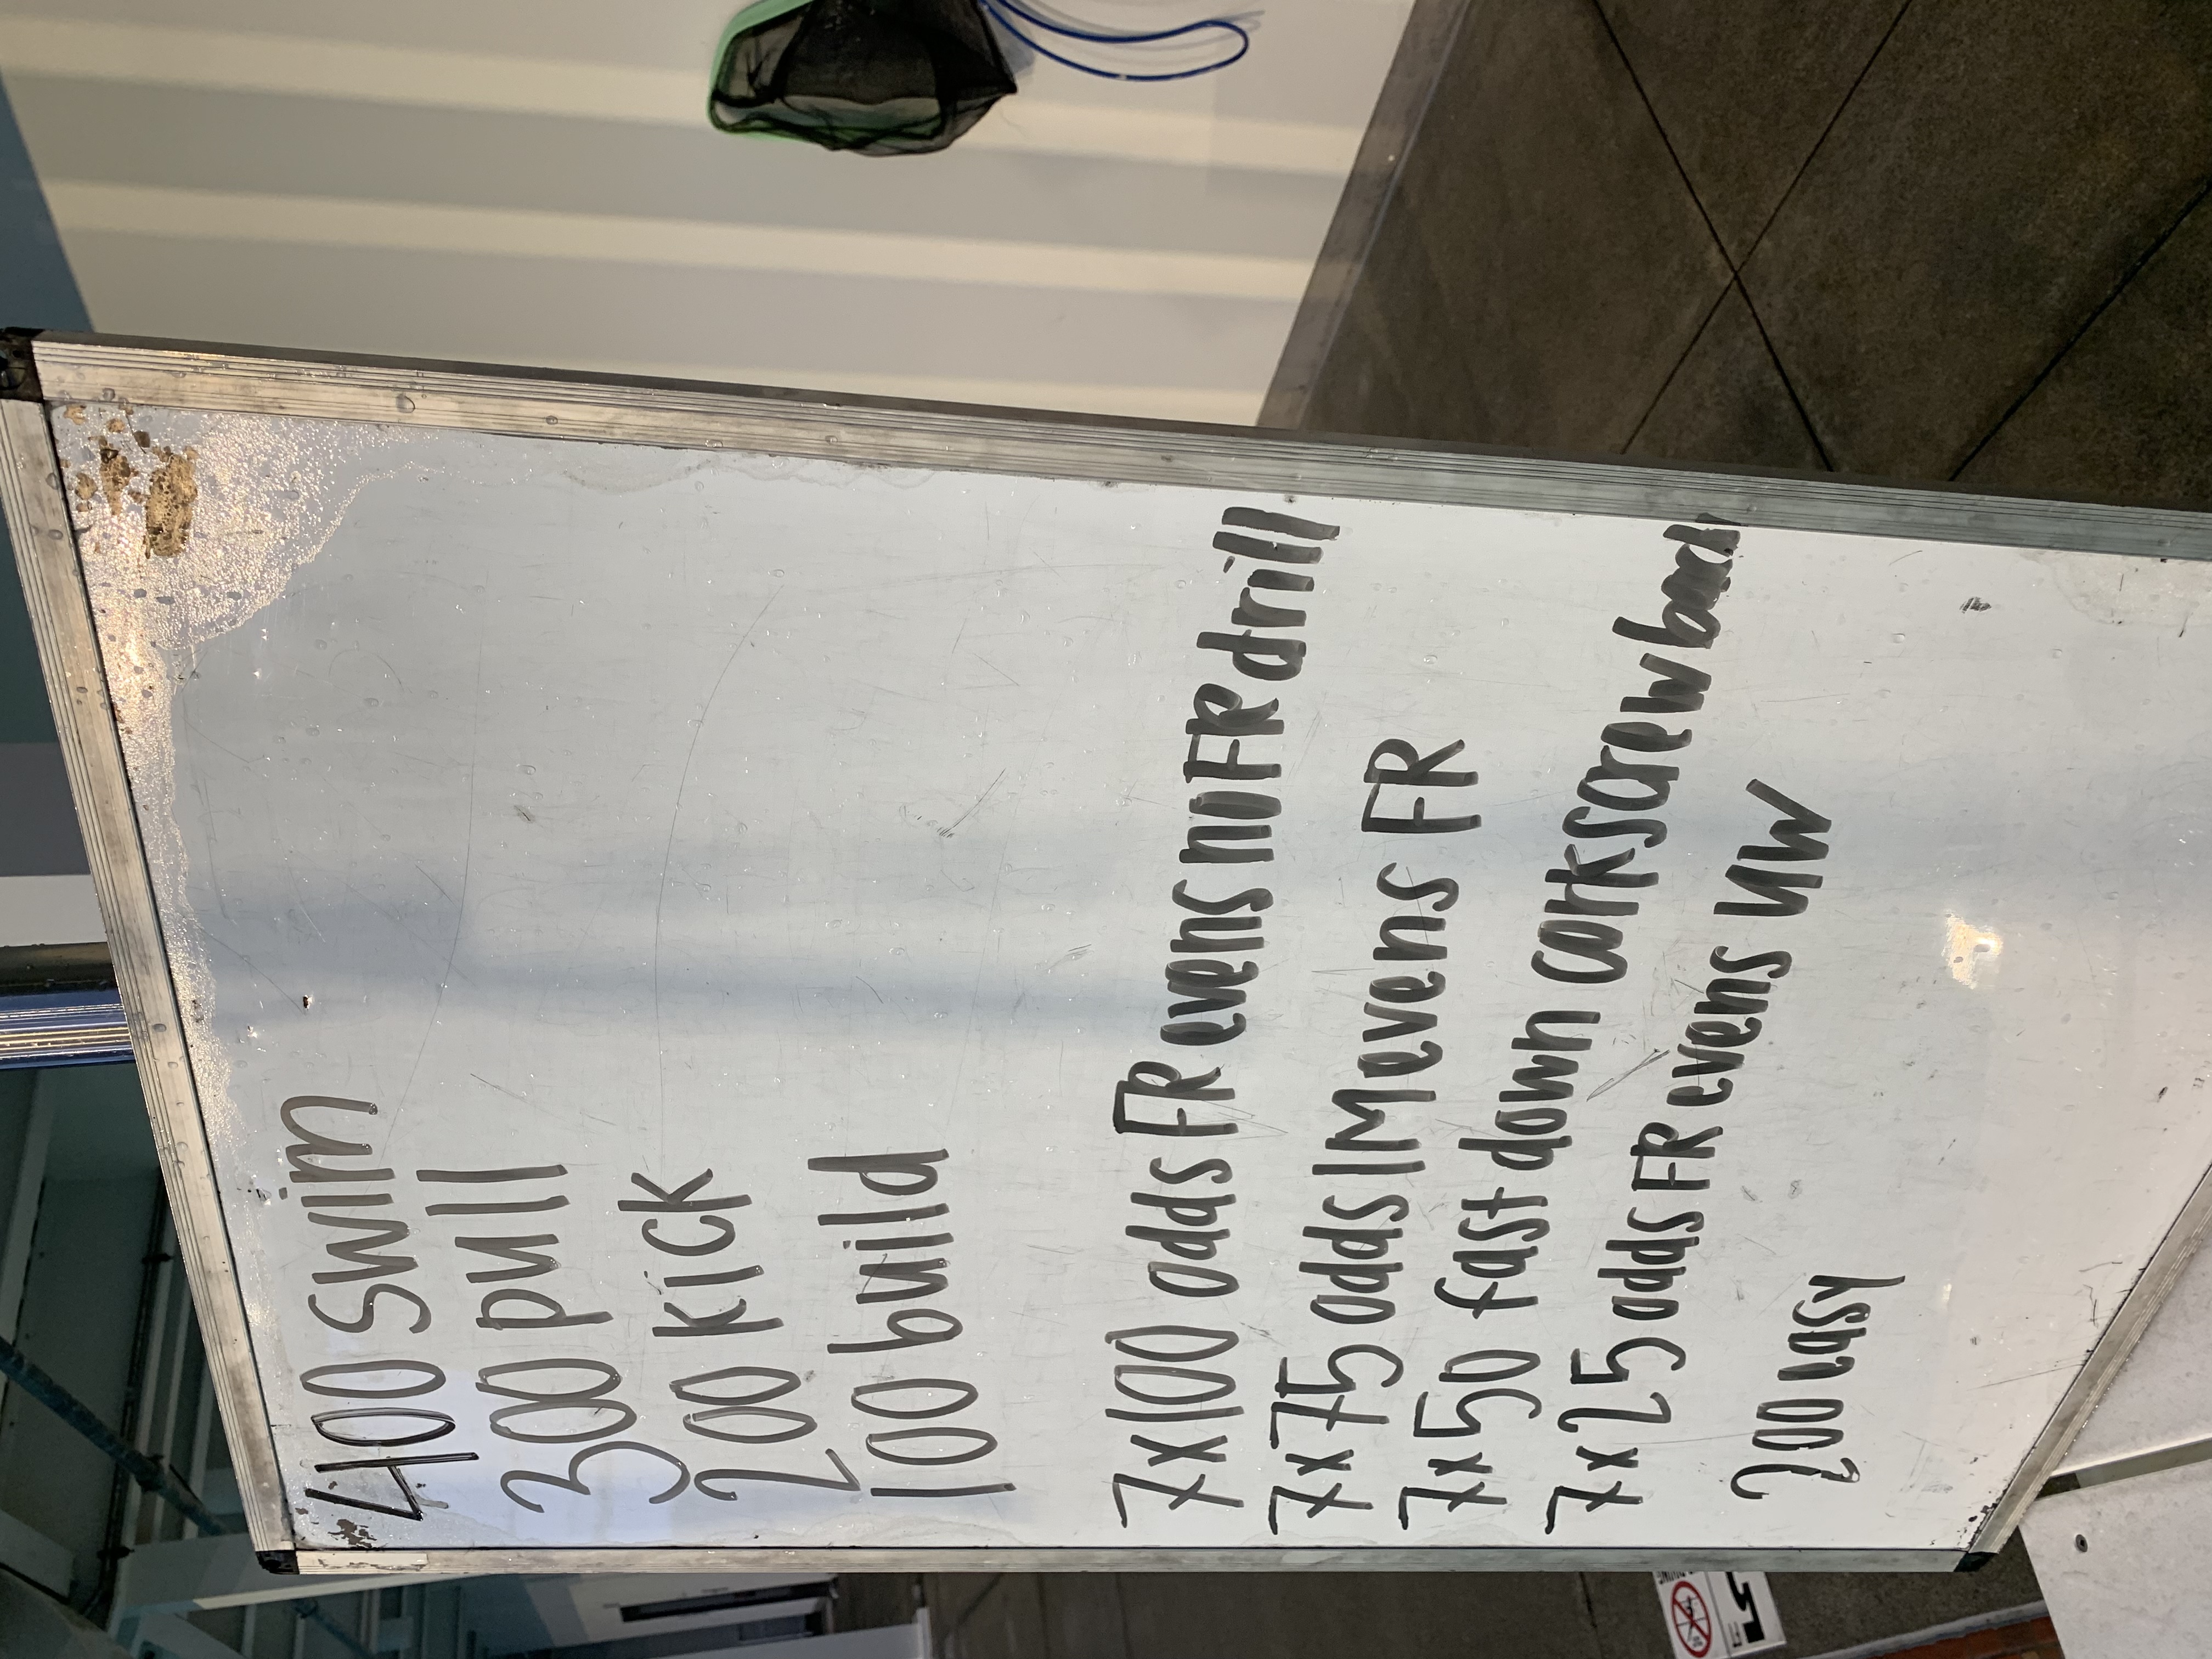 400 swim
300 pull
200 kick
100 build
7x100 odds FR evens niFR drill
7x75 odds IM evens FR
7x50 fast down corkscrew back
7x25 odds FR evens UW
200 easy
5
FT